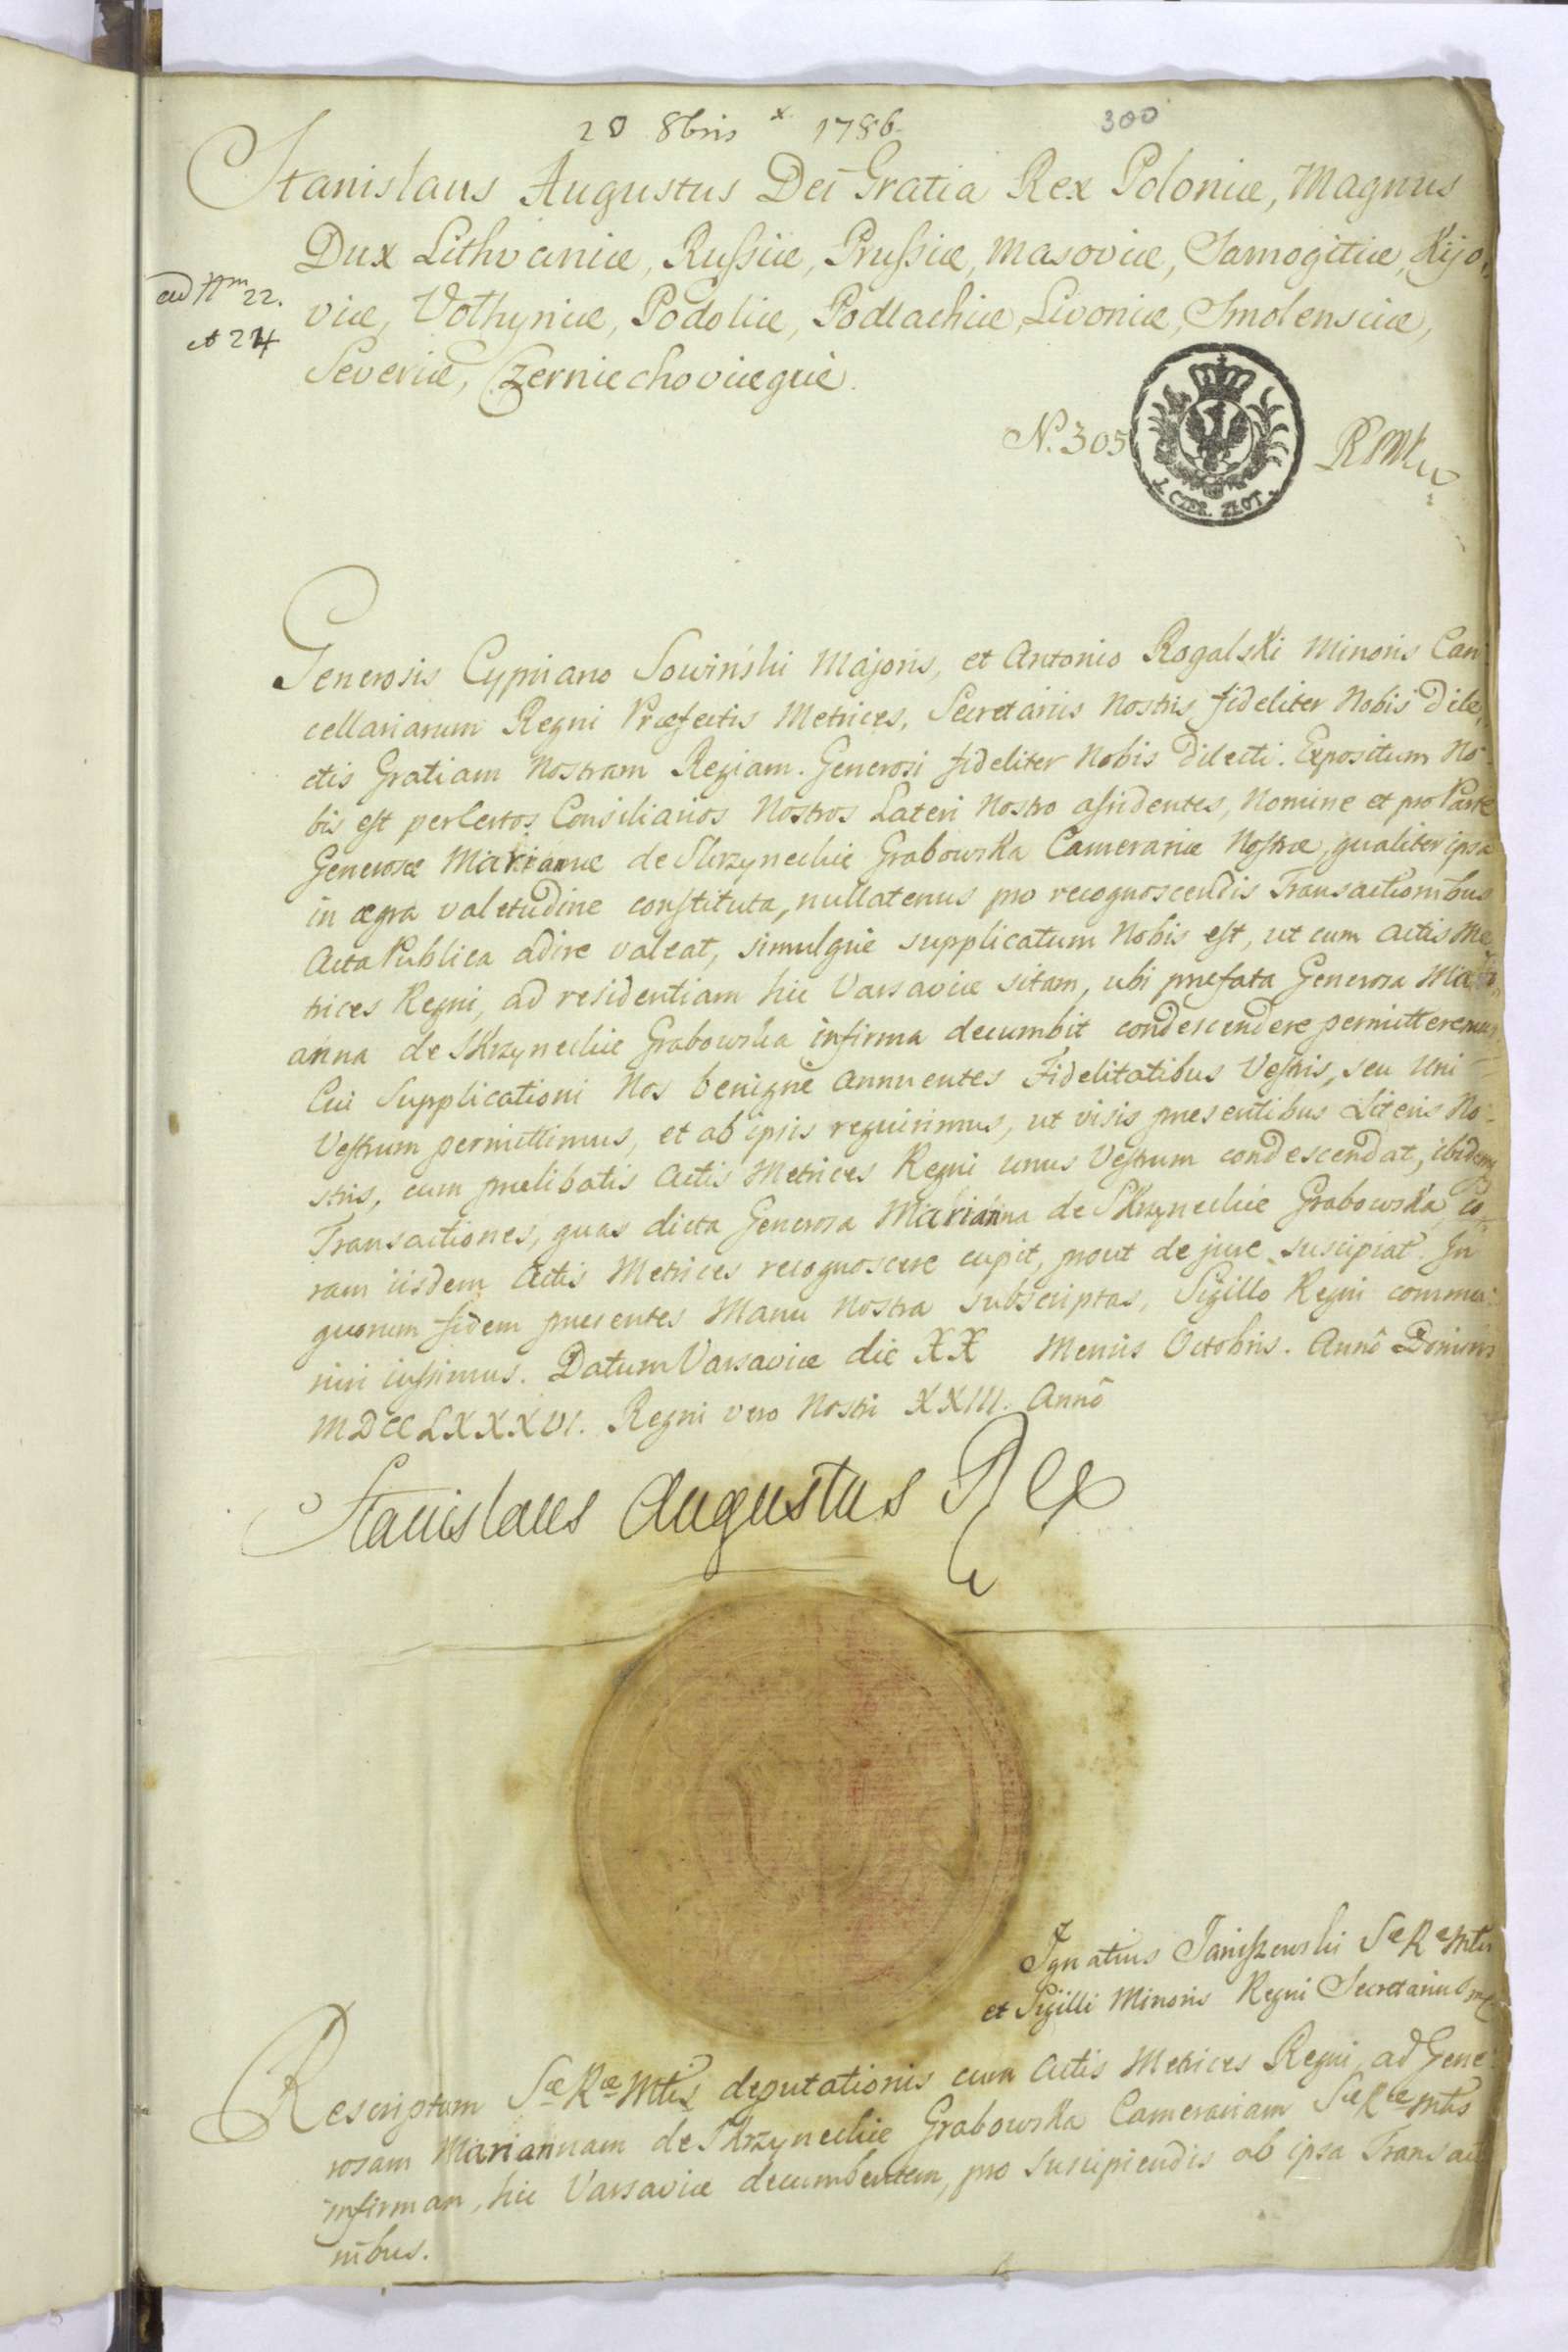 20 8bris x 1786.
300
Stanislaus Augustus Dei Gratia Rex Poloniæ, Magnus
Dux Lithvaniæ, Rußiæ, Prußiæ, Masoviæ, Samogitiæ, Kijo-
ad Nm 22.
et 24
viæ, Volhyniæ, Podoliæ, Podlachiæ, Livoniæ, Smolensciæ,
Severiæ, Czerniechoviæquè.
N. 305
1. CZER. ZŁOT.
Generosis Cypriano Sowiński Majoris, et Antonio Rogalski Minoris Can-
cellariarum Regni Præfectis Metrices, Secretariis Nostris fideliter Nobis Dile-
ctis Gratiam Nostram Regiam. Generosi fideliter Nobis Dilecti. Expositum No-
bis est per Certos Consiliarios Nostros Lateri Nostro assidentes, Nomine et pro Parte
Generosæ Mariannæ de Skrzyneckie Grabowska Camerariæ Nostræ, qualiter ipsa
in ægra valetudine constituta, nullatenus pro recognoscendis Transactionibus
Acta Publica adire valeat, simulquè supplicatum Nobis est, ut cum Actis Me-
trices Regni, ad residentiam hic Varsaviæ sitam, ubi præfata Generosa Mari-
anna de Skrzyneckie Grabowska infirma decumbit condescendere permitteremus
Cui Supplicationi Nos benignè annuentes Fidelitatibus Vestris, seu Uni
Vestrum permittimus, et ab ipsis requirimus, ut visis præsentibus Literis No-
stris, cum prælibatis Actis Metrices Regni unus Vestrum condescendat, ibidemq
Transactiones, quas dicta Generosa Marianna de Skrzyneckie Grabowska co-
ram iisdem Actis Metrices recognoscere cupit, prout de jure suscipiat. In
quorum fidem præsentes Manu Nostra subscriptas, Sigillo Regni commu-
niri iussimus. Datum Varsaviæ die XX Mensis Octobris. Annô Domini
MDCCLXXXVI. Regni vero Nostri XXIII. Annô
Stanislaus Augustus Rex
Ignatius Janiszewski Sæ Ræ Mtis
et Sigilli Minoris Regni Secretarius mp
Rescriptum Sæ Ræ Mtis deputationis cum Actis Metrices Regni, ad Gene-
rosam Mariannam de Skrzyneckie Grabowska Camerariam Sæ Ræ Mtis
infirmam, hic Varsaviæ decumbentem, pro suscipiendis ab ipsa Transactio
nibus.